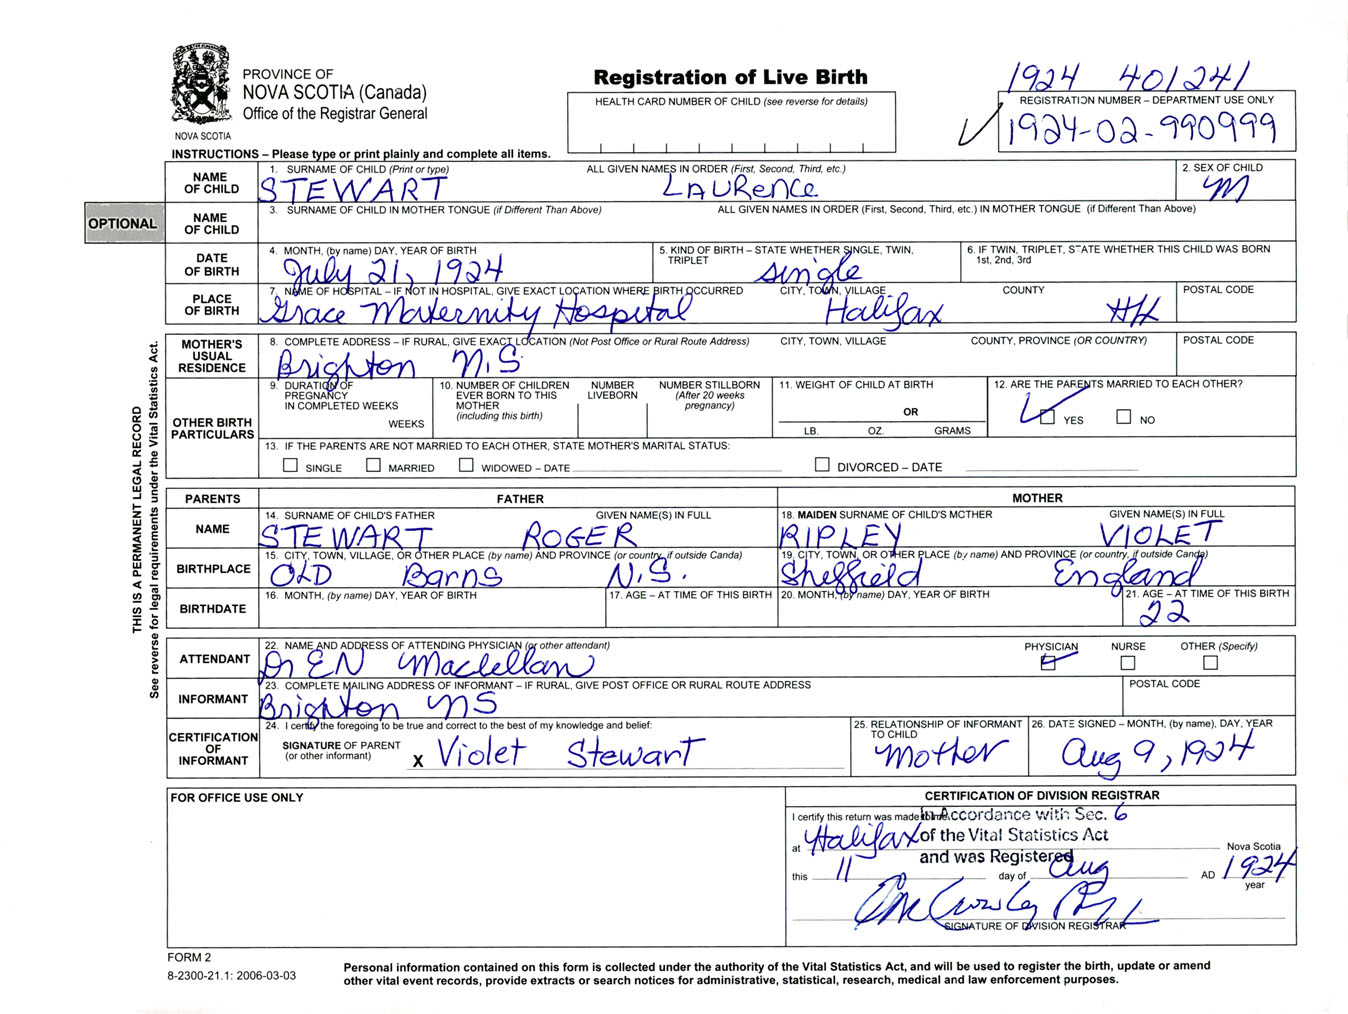 PROVINCE OF
NOVA SCOTIA (Canada)
Office of the Registrar General
NOVA SCOTIA
Registration of Live Birth
HEALTH CARD NUMBER OF CHILD (see reverse for details)
1924 401241
REGISTRATION NUMBER – DEPARTMENT USE ONLY
1924-02-990999
INSTRUCTIONS – Please type or print plainly and complete all items.
NAME OF CHILD
1. SURNAME OF CHILD (Print or type) ALL GIVEN NAMES IN ORDER (First, Second, Third, etc.) 2. SEX OF CHILD
STEWART LAURence M
OPTIONAL
NAME OF CHILD
3. SURNAME OF CHILD IN MOTHER TONGUE (if Different Than Above) ALL GIVEN NAMES IN ORDER (First, Second, Third, etc.) IN MOTHER TONGUE (if Different Than Above)
DATE OF BIRTH
4. MONTH, (by name) DAY, YEAR OF BIRTH 5. KIND OF BIRTH – STATE WHETHER SINGLE, TWIN, TRIPLET 6. IF TWIN, TRIPLET, STATE WHETHER THIS CHILD WAS BORN 1st, 2nd, 3rd
July 21, 1924 single
PLACE OF BIRTH
7. NAME OF HOSPITAL – IF NOT IN HOSPITAL, GIVE EXACT LOCATION WHERE BIRTH OCCURRED CITY, TOWN, VILLAGE COUNTY POSTAL CODE
Grace Maternity Hospital Halifax Hfx
MOTHER'S USUAL RESIDENCE
8. COMPLETE ADDRESS – IF RURAL, GIVE EXACT LOCATION (Not Post Office or Rural Route Address) CITY, TOWN, VILLAGE COUNTY, PROVINCE (OR COUNTRY) POSTAL CODE
Brighton N.S.
OTHER BIRTH PARTICULARS
9. DURATION OF PREGNANCY IN COMPLETED WEEKS
WEEKS
10. NUMBER OF CHILDREN EVER BORN TO THIS MOTHER (including this birth)
NUMBER LIVEBORN
NUMBER STILLBORN (After 20 weeks pregnancy)
11. WEIGHT OF CHILD AT BIRTH
OR
LB. OZ. GRAMS
12. ARE THE PARENTS MARRIED TO EACH OTHER?
YES NO
13. IF THE PARENTS ARE NOT MARRIED TO EACH OTHER, STATE MOTHER'S MARITAL STATUS:
SINGLE MARRIED WIDOWED – DATE DIVORCED – DATE
THIS IS A PERMANENT LEGAL RECORD
See reverse for legal requirements under the Vital Statistics Act.
PARENTS FATHER MOTHER
NAME
14. SURNAME OF CHILD'S FATHER GIVEN NAME(S) IN FULL 18. MAIDEN SURNAME OF CHILD'S MOTHER GIVEN NAME(S) IN FULL
STEWART ROGER RIPLEY VIOLET
BIRTHPLACE
15. CITY, TOWN, VILLAGE, OR OTHER PLACE (by name) AND PROVINCE (or country, if outside Canda) 19. CITY, TOWN, OR OTHER PLACE (by name) AND PROVINCE (or country, if outside Canda)
OLD Barns N.S. Sheffield England
BIRTHDATE
16. MONTH, (by name) DAY, YEAR OF BIRTH 17. AGE – AT TIME OF THIS BIRTH 20. MONTH, (by name) DAY, YEAR OF BIRTH 21. AGE – AT TIME OF THIS BIRTH
22
ATTENDANT
22. NAME AND ADDRESS OF ATTENDING PHYSICIAN (or other attendant) PHYSICIAN NURSE OTHER (Specify)
Dr EN Maclellan
INFORMANT
23. COMPLETE MAILING ADDRESS OF INFORMANT – IF RURAL, GIVE POST OFFICE OR RURAL ROUTE ADDRESS POSTAL CODE
Brighton NS
CERTIFICATION OF INFORMANT
24. I certify the foregoing to be true and correct to the best of my knowledge and belief:
SIGNATURE OF PARENT
(or other informant)
X Violet Stewart
25. RELATIONSHIP OF INFORMANT TO CHILD
Mother
26. DATE SIGNED – MONTH, (by name), DAY, YEAR
Aug 9, 1924
FOR OFFICE USE ONLY
CERTIFICATION OF DIVISION REGISTRAR
I certify this return was made
In Accordance with Sec. 6
at Halifax of the Vital Statistics Act Nova Scotia
and was Registered
this 11 day of Aug AD 1924
year
SIGNATURE OF DIVISION REGISTRAR
FORM 2
8-2300-21.1: 2006-03-03
Personal information contained on this form is collected under the authority of the Vital Statistics Act, and will be used to register the birth, update or amend
other vital event records, provide extracts or search notices for administrative, statistical, research, medical and law enforcement purposes.